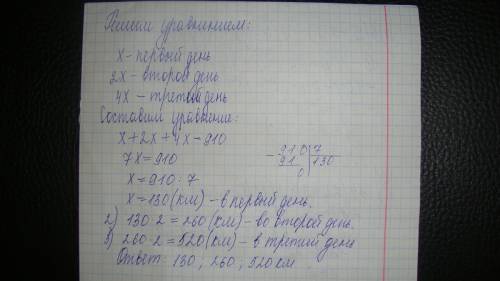 Решим уравнением:
x - первый день
2x - второй день
4x - третий день
Составим уравнение:
x + 2x + 4x = 910
7x = 910
x = 910 : 7
x = 130 (км) - в первый день.
910 | 7
91 | 130
0
2) 130 · 2 = 260 (км) - во второй день.
3) 260 · 2 = 520 (км) - в третий день
Ответ: 130, 260, 520 км